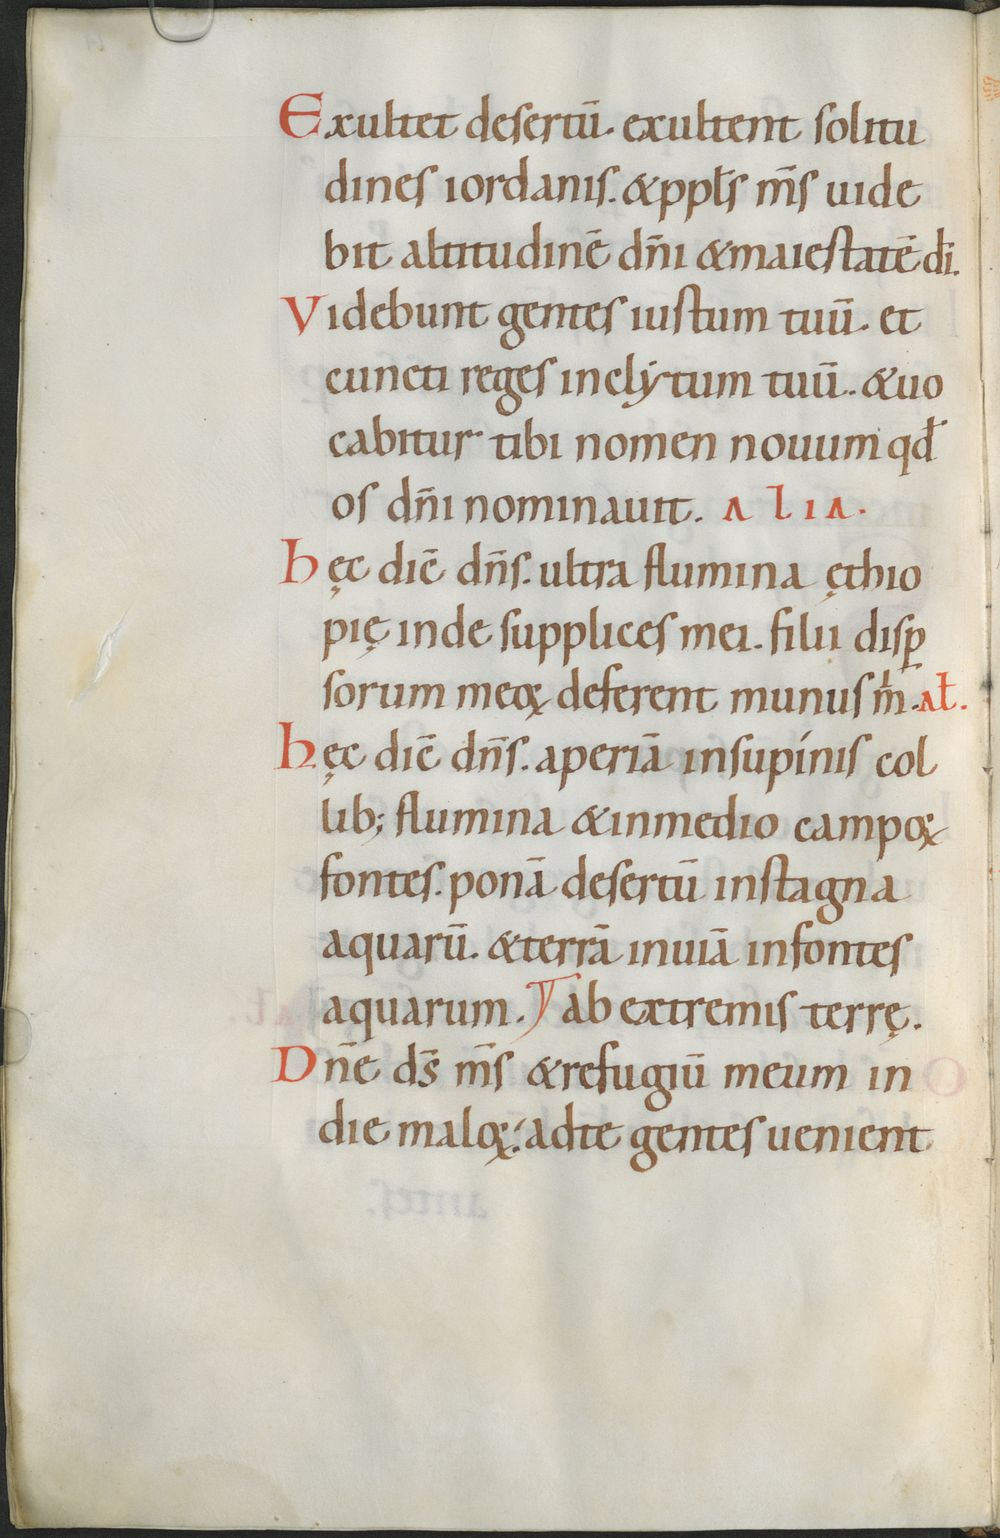 Exultet desertū. exultent solitu
dines iordanis. & ppl̄s m̄s uide
bit altitudinē dn̄i & maiestatē dī.
Videbunt gentes iustum tuū. et
cuncti reges inclytum tuū. & uo
cabitur tibi nomen nouum qđ
os dn̄i nominauit. ALIA.
hęc diē dn̄s. ultra flumina ęthio
pię inde supplices mei. filii disꝑ
sorum meoꝝ deferent munus m̄. Ał.
hęc diē dn̄s. aperiā in supínis col
lib; flumina & in medio campoꝝ
fontes. ponā desertū in stagna
aquarū. & terrā inuiā in fontes
aquarum. Ꝟ ab extremis terrę.
Dn̄e ds̄ m̄s & refugiū meum in
die maloꝝ: ad te gentes uenient